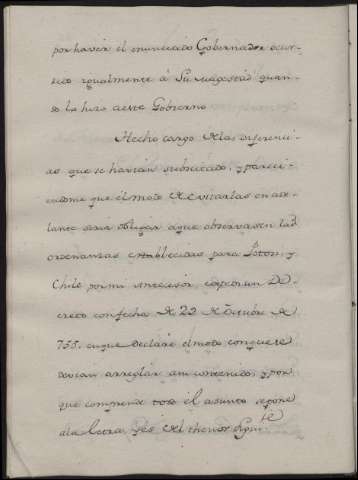 por haver el enunciado Governador ocur-
rido igualmente á Su Magestad quan-
do la hizo à este Govierno
Hecho cargo de las diferenci-
as que se havian subscitado, y pareci-
endome que el modo de evitarlas en ade-
lante seria obligar à que observasen las
ordenanzas establecidas para Potosi, y
Chile por mi Antecesor expedi un De-
creto con fecha de 22 de Octubre de
755. en que declarè el modo con que se
devian arreglar à su contenido, y por
que comprende todo el asunto se pone
à la letra, y es del thenor sigui-
te